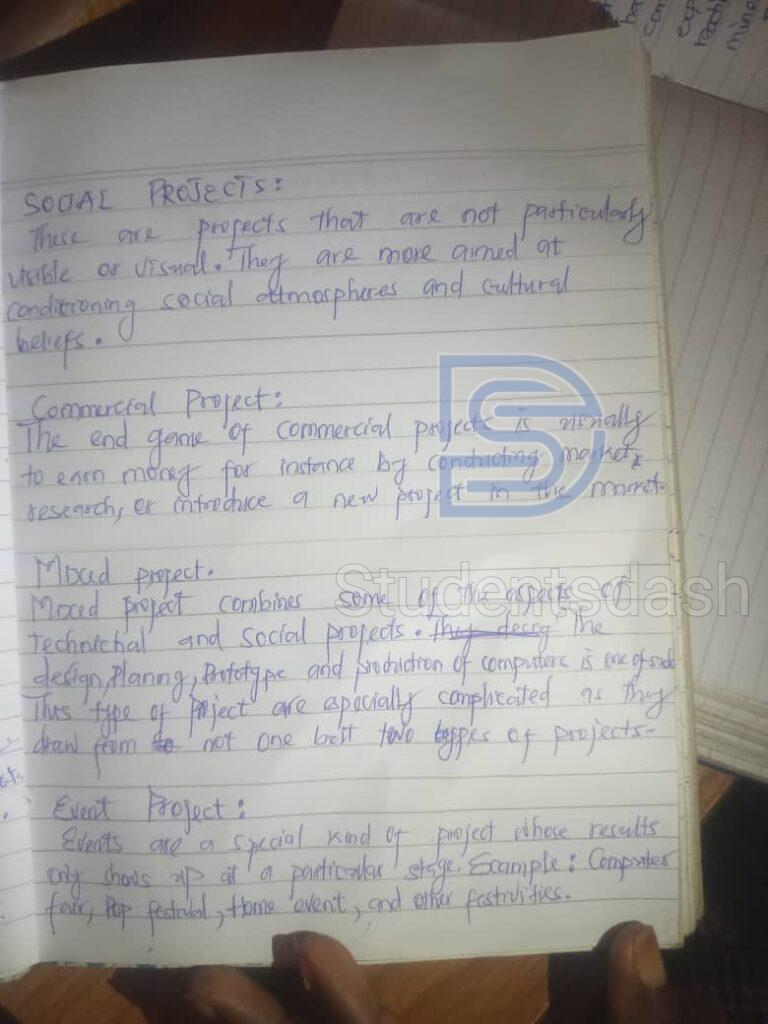 SOCIAL PROJECTS:
These are projects that are not particularly
visible or visual. They are more aimed at
conditioning social attmospheres and cultural
beliefs.
Commercial Project:
The end game of commercial projects is usually
to earn money for instance by conducting market
research, or introduce a new project in the market.
Mixed project.
Mixed project combines some of the aspects of
technichal and social projects. The
design, Planng, Prototype and production of computers is one of such
This type of project are especially complicated as they
draw from not one but two types of projects-
Event Project:
Events are a special kind of project whose results
only shows up at a particular stage. Example: Computer
fair, Pop festival, Home event, and other festivities.
Studentsdash